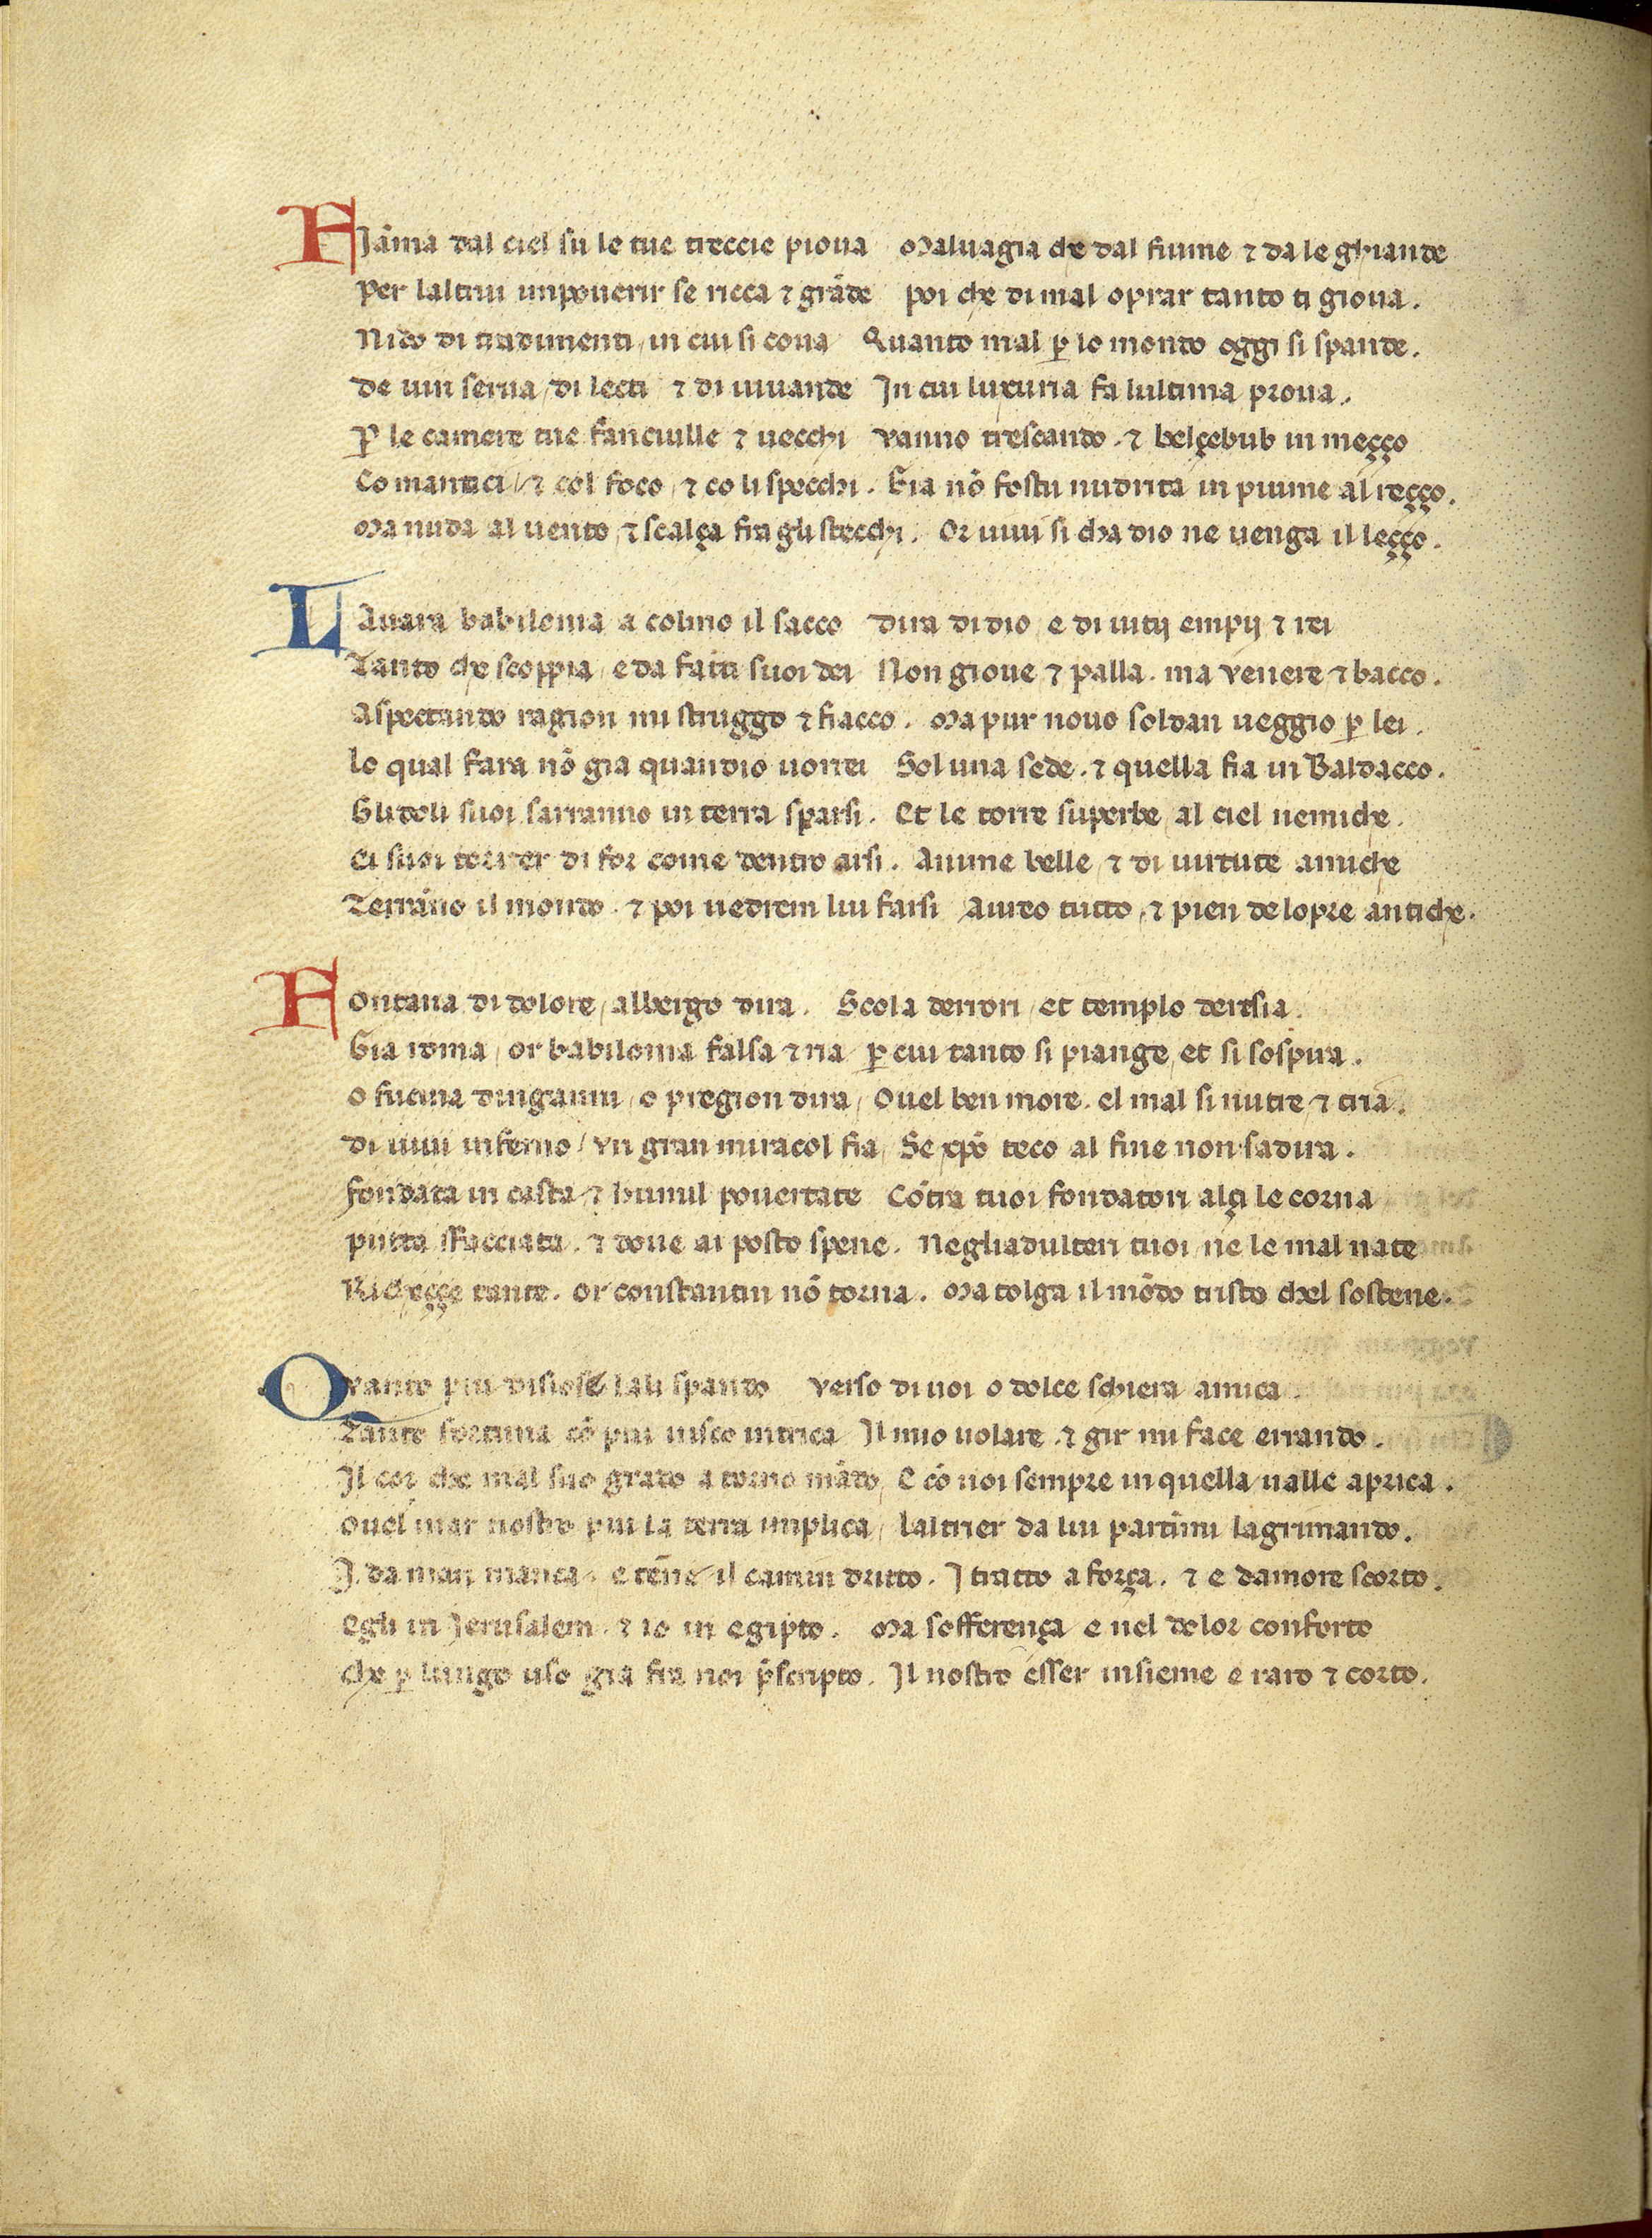 FIāma dal ciel su le tue treccie pioua Maluagia che dal fiume ⁊ da le ghiande
Per laltrui inpouerir se ricca ⁊ grāde poi che di mal oprar tanto ti gioua.
Nido di tradimenti / in cui si coua Quanto mal ꝑ lo mondo oggi si spande.
De uin serua / di lecti ⁊ di uiuande In cui luxuria fa lultima proua.
ꝑ le camere tue fanciulle ⁊ uecchi vanno trescando. ⁊ belçebub in meçço
Co mantici / ⁊ col foco / ⁊ co li specchi. Gia nō fostu nudrita in piume al reçço.
Ma nuda al uento / ⁊ scalça fra gli stecchi. Or uiui si cha dio ne uenga il leçço.
LAuara babilonia a colmo il sacco dira di dio / e di uitij empij ⁊ rei
Tanto che scoppia / e da fatti suoi dei Non gioue ⁊ palla. ma venere ⁊ bacco.
Aspectando ragion mi struggo ⁊ fiacco. Ma pur nouo soldan ueggio ꝑ lei.
lo qual fara nō gia quandio uorrei Sol una sede. ⁊ quella fia in Baldacco.
Glidoli suoi sarranno in terra sparsi. Et le torre superbe / al ciel nemiche.
Ei suoi torrer di for come dentro arsi. Anime belle / ⁊ di uirtute amiche
Terrāno il mondo. ⁊ poi uedrem lui farsi Aureo tutto / ⁊ pien de lopre antiche.
FOntana di dolore / albergo dira. Scola derrori / et templo deresia.
Gia roma / or babilonia falsa ⁊ ria ꝑ cui tanto si piange / et si sospira.
O fucina dinganni / o pregion dira / Ouel ben more. el mal si nutre ⁊ cria.
di uiui inferno / vn gran miracol fia / Se xpō teco al fine non sadira.
fondata in casta ⁊ humil pouertate Cōtra tuoi fondatori alçi le corna
putta sfacciata. ⁊ doue ai posto spene. Negliadulteri tuoi / ne le mal nate
Richeççe tante. or constantin nō torna. Ma tolga il mōdo tristo chel sostene.
QVanto piu disiose lali spando verso di uoi o dolce schiera amica.
Tanto fortuna cō piu uisco intrica Il mio uolare. ⁊ gir mi face errando.
Il cor che mal suo grado a torno mādo / E cō uoi sempre in quella ualle aprica.
ouel mar nostro piu la terra implica / laltrier da lui partimi lagrimando.
I. da man manca. e tēne il camin dritto. I tracto a força. ⁊ e damore scorto.
Egli in Jerusalem. ⁊ io in egipto. Ma sofferença e nel dolor conforto
che ꝑ lungo uso gia fra noi p̄scripto. Il nostro esser insieme e raro ⁊ corto.